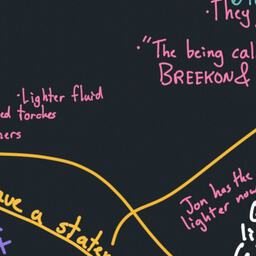 · They
· "The being cal
BREEKON &
· Lighter fluid
ed torches
ners
ave a staten
Jon has the
lighter now